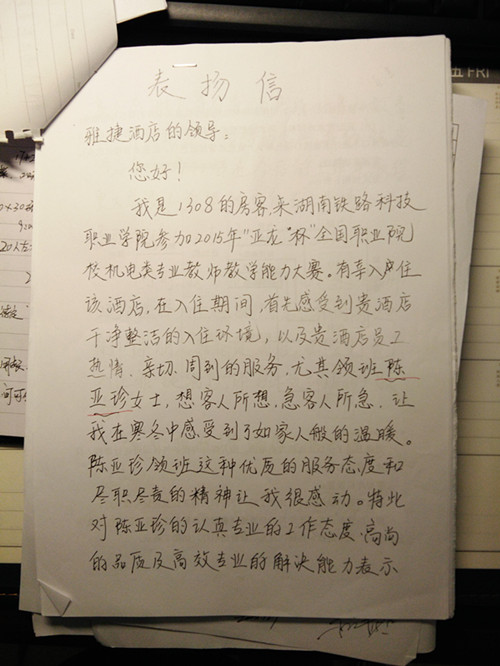 五 FRI
表扬信
雅捷酒店的领导：
您好！
我是1308的房客,来湖南铁路科技
职业学院参加2015年“亚龙”杯“全国职业院
校机电类专业教师教学能力大赛。有幸入住
该酒店,在入住期间,首先感受到贵酒店
干净整洁的入住环境，以及贵酒店员工
热情、亲切、周到的服务,尤其领班陈
亚珍女士，想客人所想,急客人所急，让
我在寒冬中感受到了如家人般的温暖。
陈亚珍领班这种优质的服务态度和
尽职尽责的精神让我很感动。特此
对陈亚珍的认真专业的工作态度、高尚
的品质及高效专业的解决能力表示